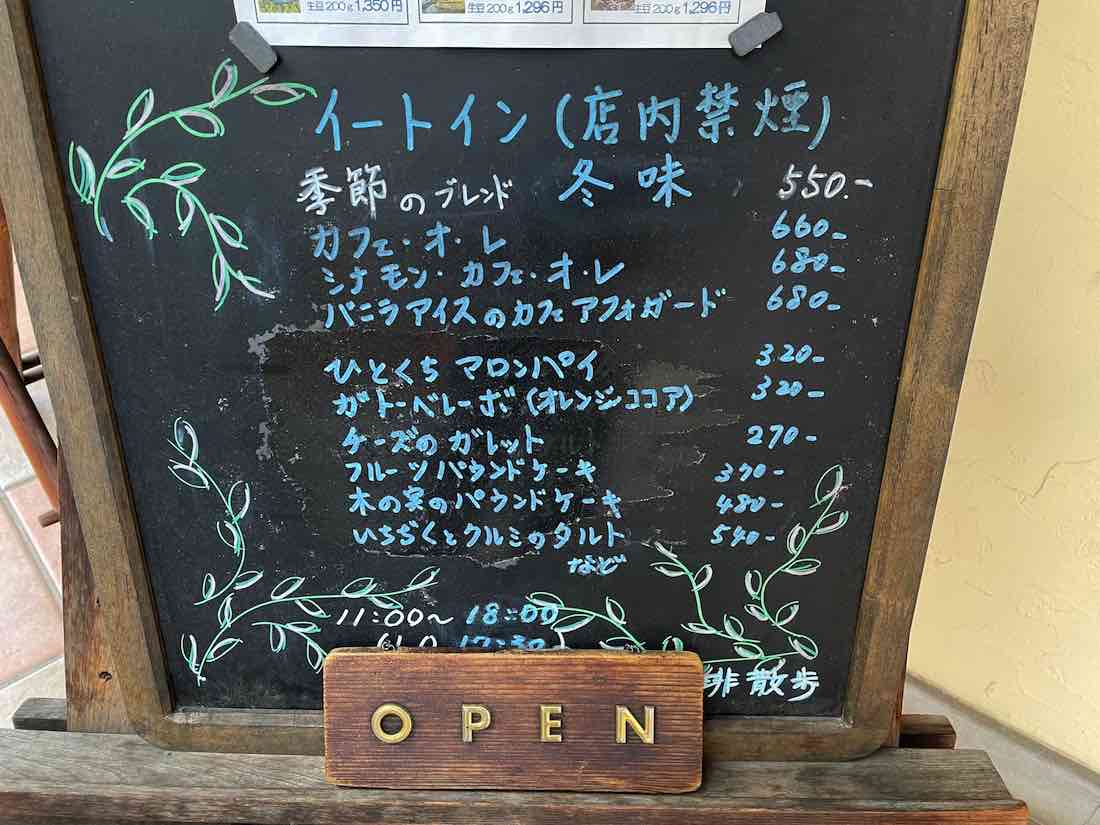 生豆200g 1,350円 生豆200g 1,296円 生豆200g 1,296円
イートイン (店内禁煙)
季節のブレンド 冬味 550.-
カフェ・オ・レ 660-
シナモン・カフェ・オ・レ 680-
バニラアイスのカフェアフォガード 680-
ひとくちマロンパイ 320-
ガトーベレーボ (オレンジココア) 320-
チーズのガレット 270-
フルーツパウンドケーキ 370-
木の実のパウンドケーキ 480-
いちぢくとクルミのタルト 540-
など
11:00~18:00
17:30
散歩
OPEN